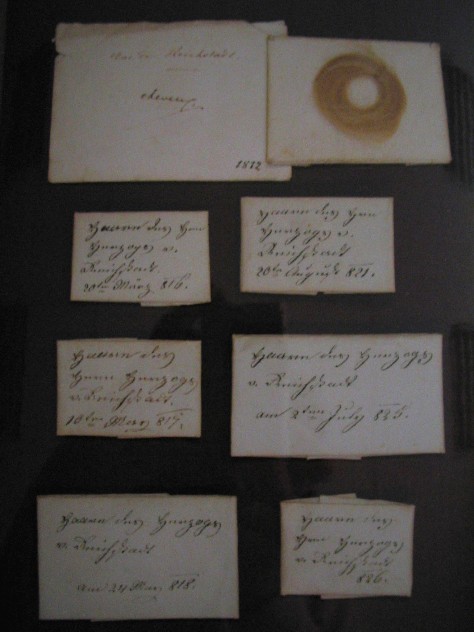 Duc de Reichstadt.
cheveux
1812
Haare des Herrn
Herzoges v.
Reichstadt
20ten März 816.
Haare des Herrn
Herzoges v.
Reichstadt
20ten August 821.
Haare des
Herrn Herzoges
v. Reichstadt.
10ten März 817.
Haare des Herzoges
v. Reichstadt
am 2ten July 825.
Haare des Herzoges
v. Reichstadt
am 24 März 818.
Haare des
Herrn Herzoges
v. Reichstadt
826.